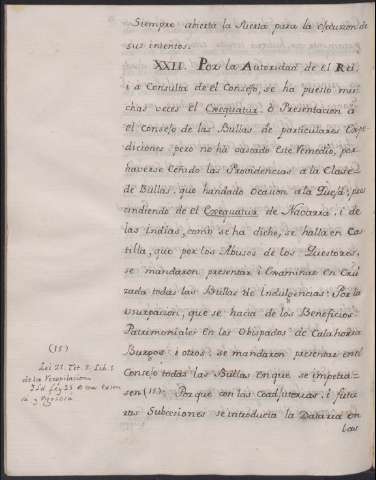 Siempre abierta la Puerta para la efecusion de
sus intentos.
XXII. Por la Autoridad de el Rei,
i a Consulta de el Consejo, se ha puesto mu-
chas veces el Exequatur, ò Presentacion à
el Consejo de las Bullas de particulares Expe-
diciones pero no ha bastado este remedio, por
haverse ceñido las Providencias a la Clase
de Bullas, que han dado Ocasion a la Queja; pres-
cindiendo de el Exequatur de Navarra, i de
las Indias, como se ha dicho, se halla en Cas-
tilla, que por los Abusos de los Questores,
se mandaron presentar i Examinar en Cru-
zada todas las Bullas de Indulgencias: Por la
Usurpacion, que se hacia de los Beneficios
Patrimoniales en los Obispados de Calahorra
Burgos i otros, se mandaron presentar en el
Consejo todas las Bullas en que se impetra-
sen (15): Por que con las Coadjutorias, i futu-
ras Subcesiones se introducia la Dataria en
las
(15)
Lei 21. Tit. 3. Lib. 1
de la Recopilacion
Lei 25